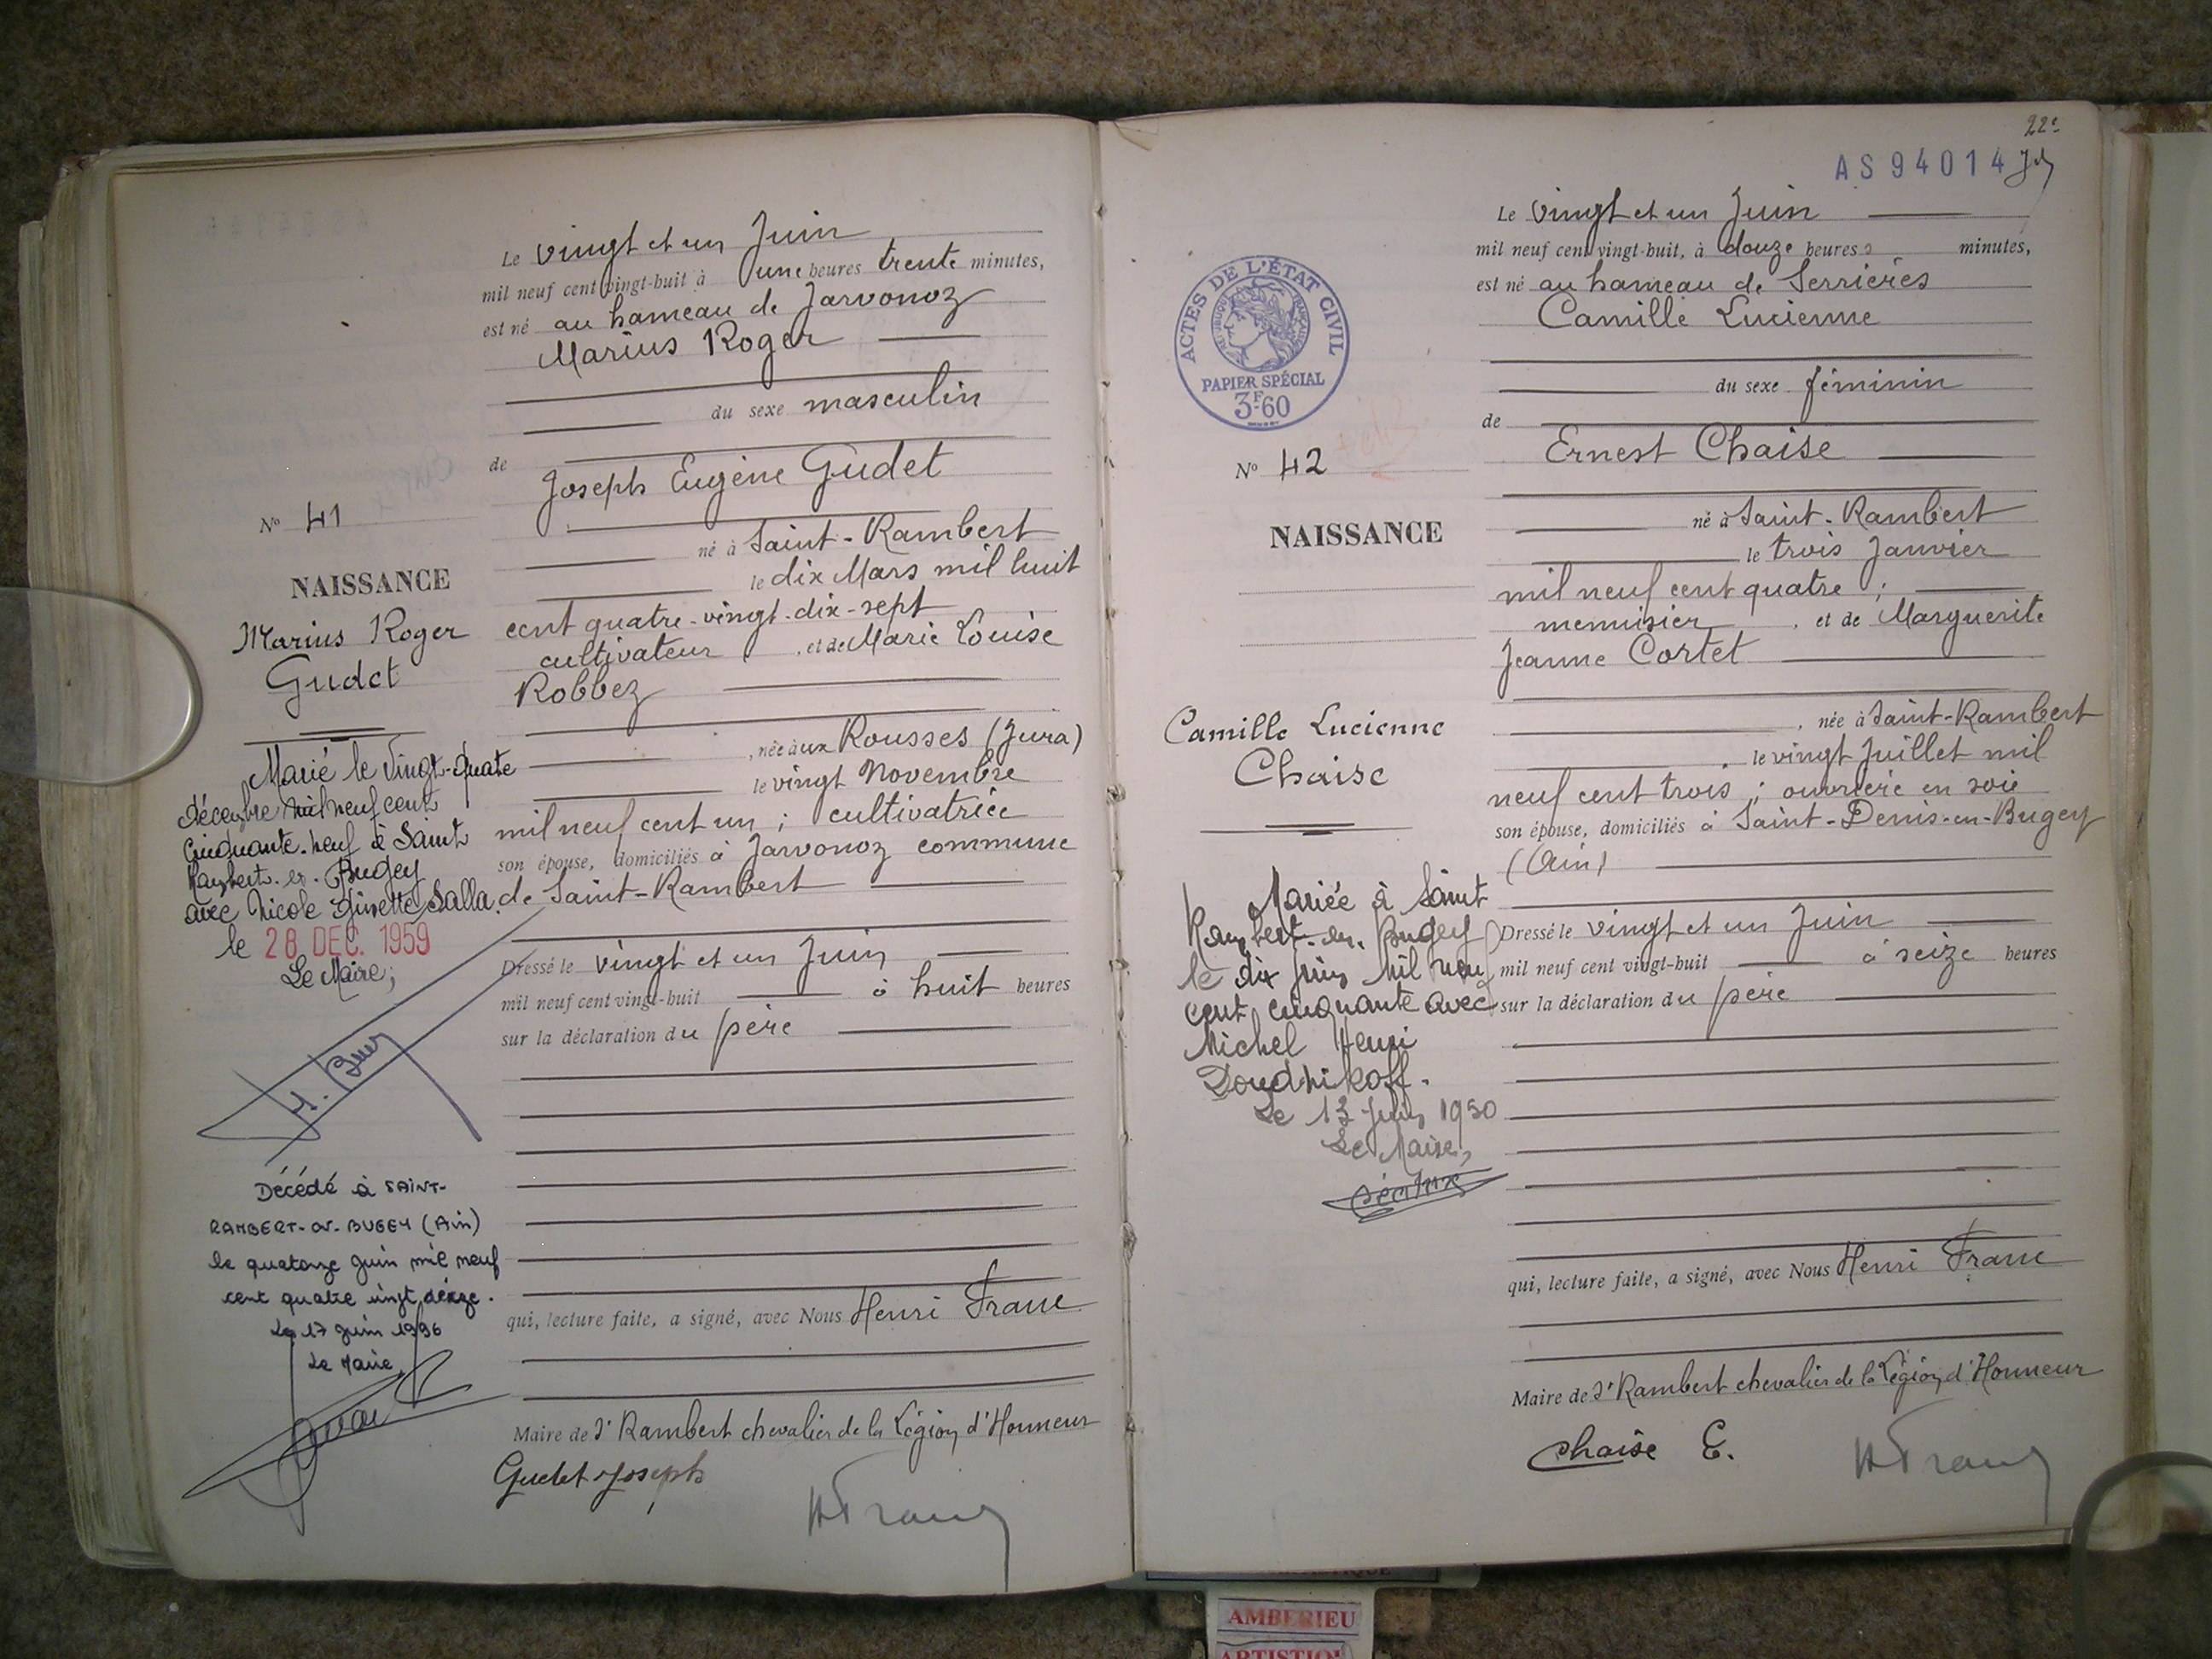 Le vingt et un Juin
mil neuf cent vingt-huit à une heures trente minutes,
est né au hameau de Jarvonoz
Marius Roger
du sexe masculin
de
Joseph Eugène Gudet
né à Saint-Rambert
le dix Mars mil huit
cent quatre-vingt-dix-sept
cultivateur, et de Marie Louise
Robbez
, née aux Rousses (Jura)
le vingt Novembre
mil neuf cent un ; cultivatrice
son épouse, domiciliés à Jarvonoz commune
de Saint-Rambert
Dressé le vingt et un Juin
mil neuf cent vingt-huit à huit heures
sur la déclaration du père
qui, lecture faite, a signé, avec Nous Henri Franc
Maire de St Rambert chevalier de la Légion d'Honneur
Gudet Joseph
HFranc
No 41
NAISSANCE
Marius Roger
Gudet
Marié le vingt-quatre
décembre mil neuf cent
cinquante-neuf à Saint
Rambert-en-Bugey
avec Nicole Ginette Salla
le 28 DEC. 1959
Le Maire;
Décédé à SAINT-
RAMBERT-en-BUGEY (Ain)
le quatorze juin mil neuf
cent quatre vingt seize.
Le 17 juin 1996
Le Maire
22e
AS94014
Le vingt et un Juin
mil neuf cent vingt-huit, à douze heures minutes,
est né au hameau de Serrières
Camille Lucienne
du sexe féminin
de
Ernest Chaise
né à Saint-Rambert
le trois Janvier
mil neuf cent quatre ;
menuisier, et de Marguerite
Jeanne Cortet
, née à Saint-Rambert
, le vingt Juillet mil
neuf cent trois ; ouvrière en soie
son épouse, domiciliés à Saint-Denis-en-Bugey
(Ain)
Dressé le vingt et un Juin
mil neuf cent vingt-huit à seize heures
sur la déclaration du père
qui, lecture faite, a signé, avec Nous Henri Franc
Maire de St Rambert chevalier de la Légion d'Honneur
Chaise E.
HFranc
ACTES DE L'ÉTAT CIVIL
PAPIER SPÉCIAL
3F60
No 42
NAISSANCE
Camille Lucienne
Chaise
Mariée à Saint
Rambert-en-Bugey
le dix juin mil neuf
cent cinquante avec
Michel Henri
Doudnikoff.
Le 13 juin 1950
Le Maire,
AMBERIEU